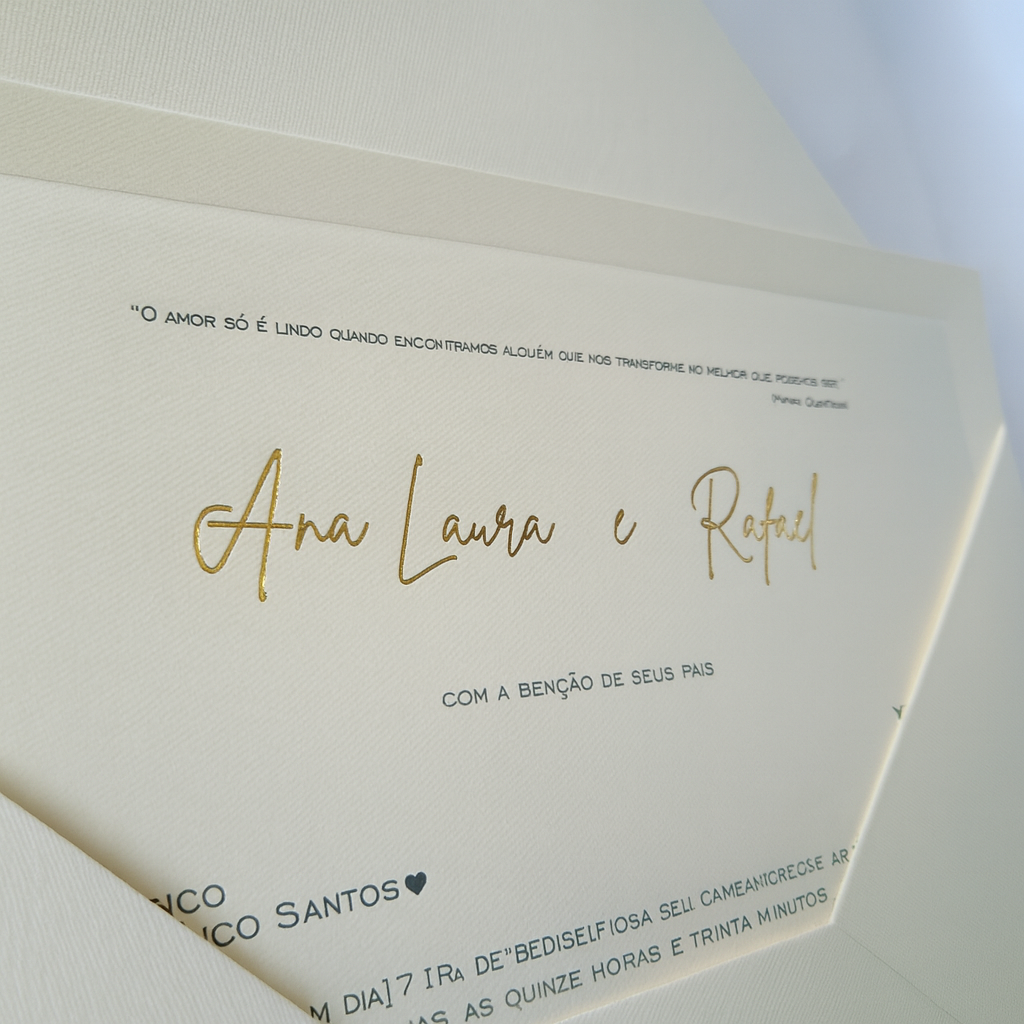 "O AMOR SÓ É LINDO QUANDO ENCONTRAMOS ALGUÉM QUIE NOS TRANSFORME NO MELHOR QUE PODEMOS SER"
Ana Laura e Rafael
COM A BENÇÃO DE SEUS PAIS
NCO
NCO SANTOS♥
M DIA]7 DE
AS QUINZE HORAS E TRINTA MINUTOS